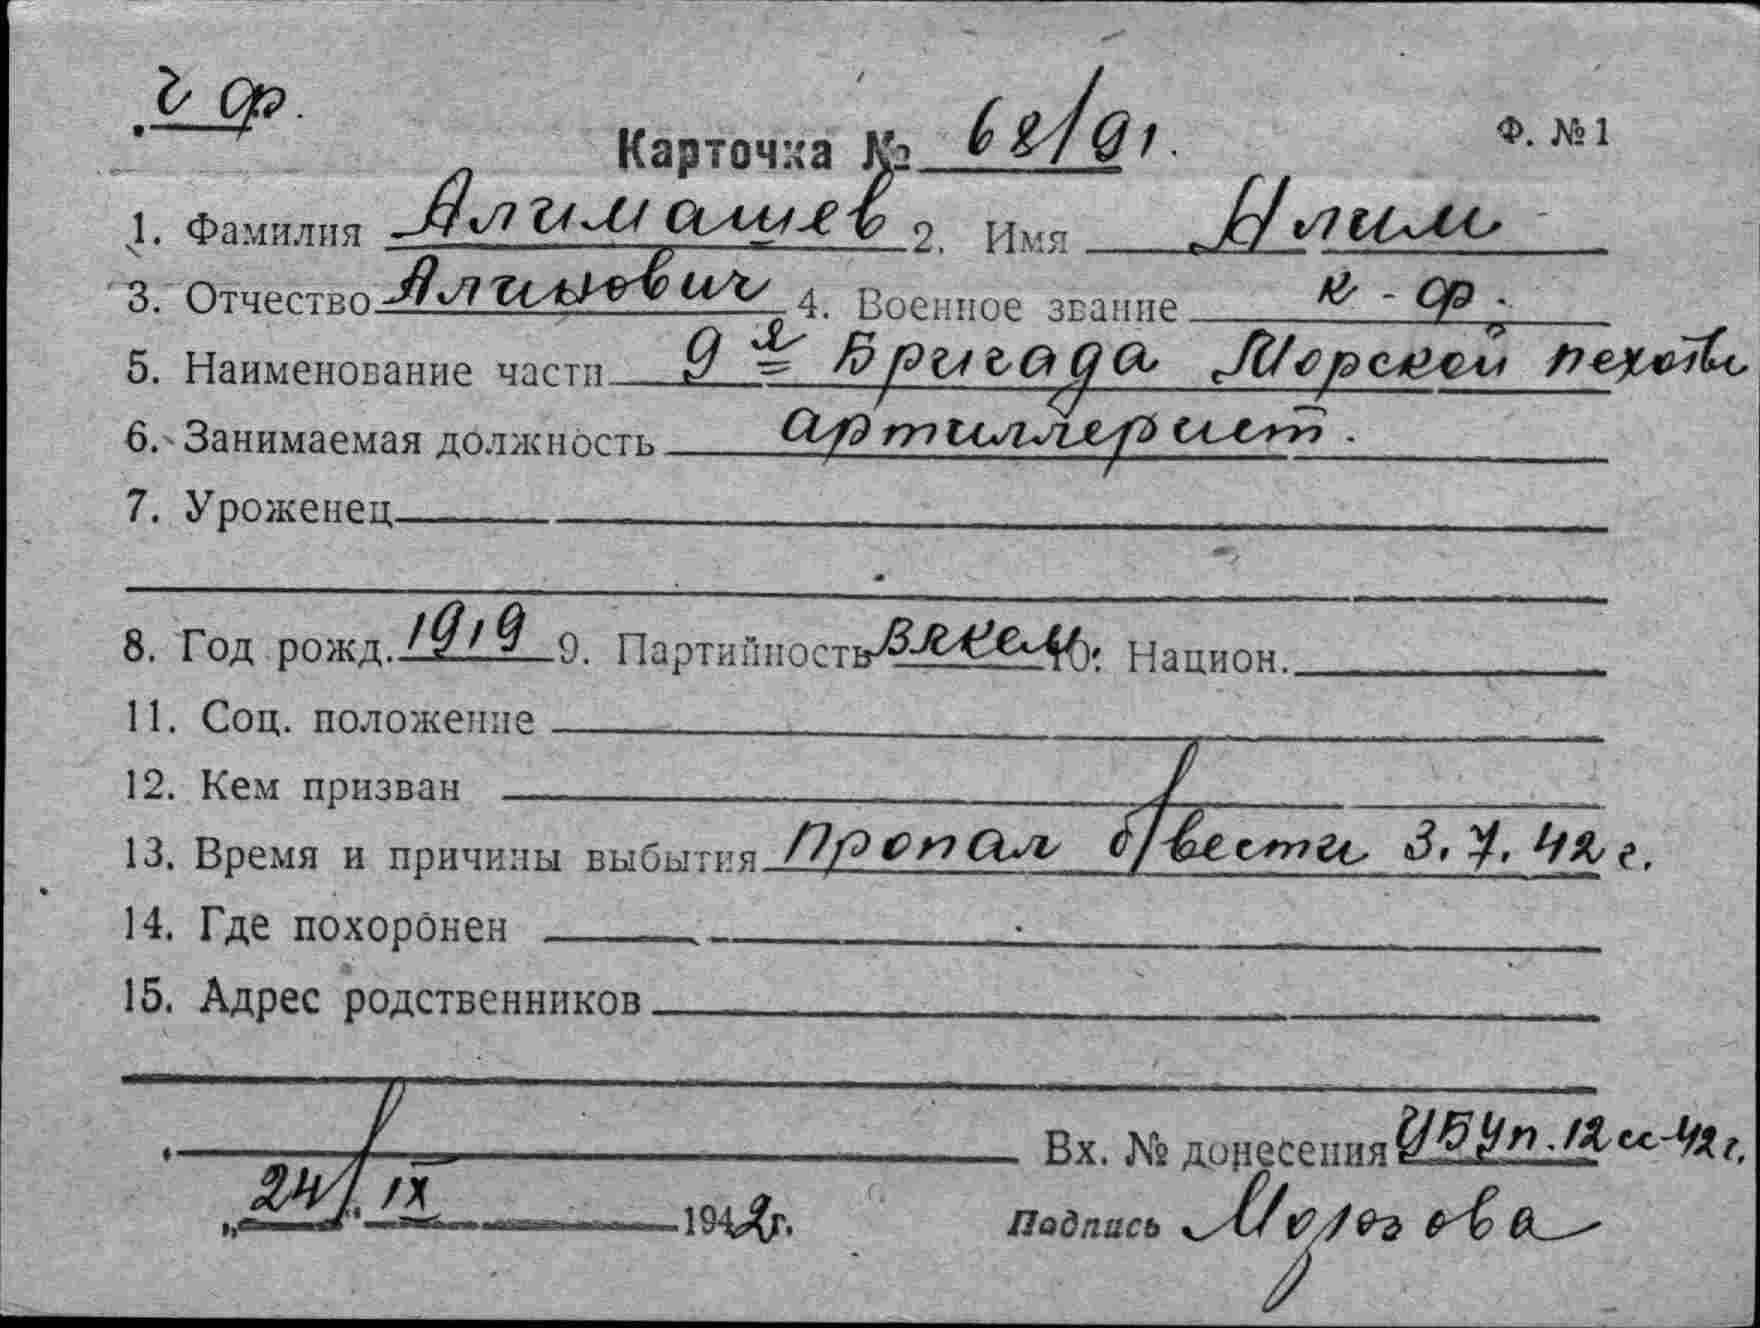 ч ф.
Карточка № 68/91. Ф. №1
1. Фамилия Алимашев 2. Имя Алим
3. Отчество Алимович 4. Военное звание к-ф.
5. Наименование части 9я Бригада Морской пехоты
6. Занимаемая должность артиллерист.
7. Уроженец
8. Год рожд. 1919 9. Партийность ВЛКСМ 10. Национ.
11. Соц. положение
12. Кем призван
13. Время и причины выбытия Пропал б/вести 3.7.42 г.
14. Где похоронен
15. Адрес родственников
Вх. № донесения УБУп.12сс-42г.
„24/" IX 1942г. Подпись Морозова